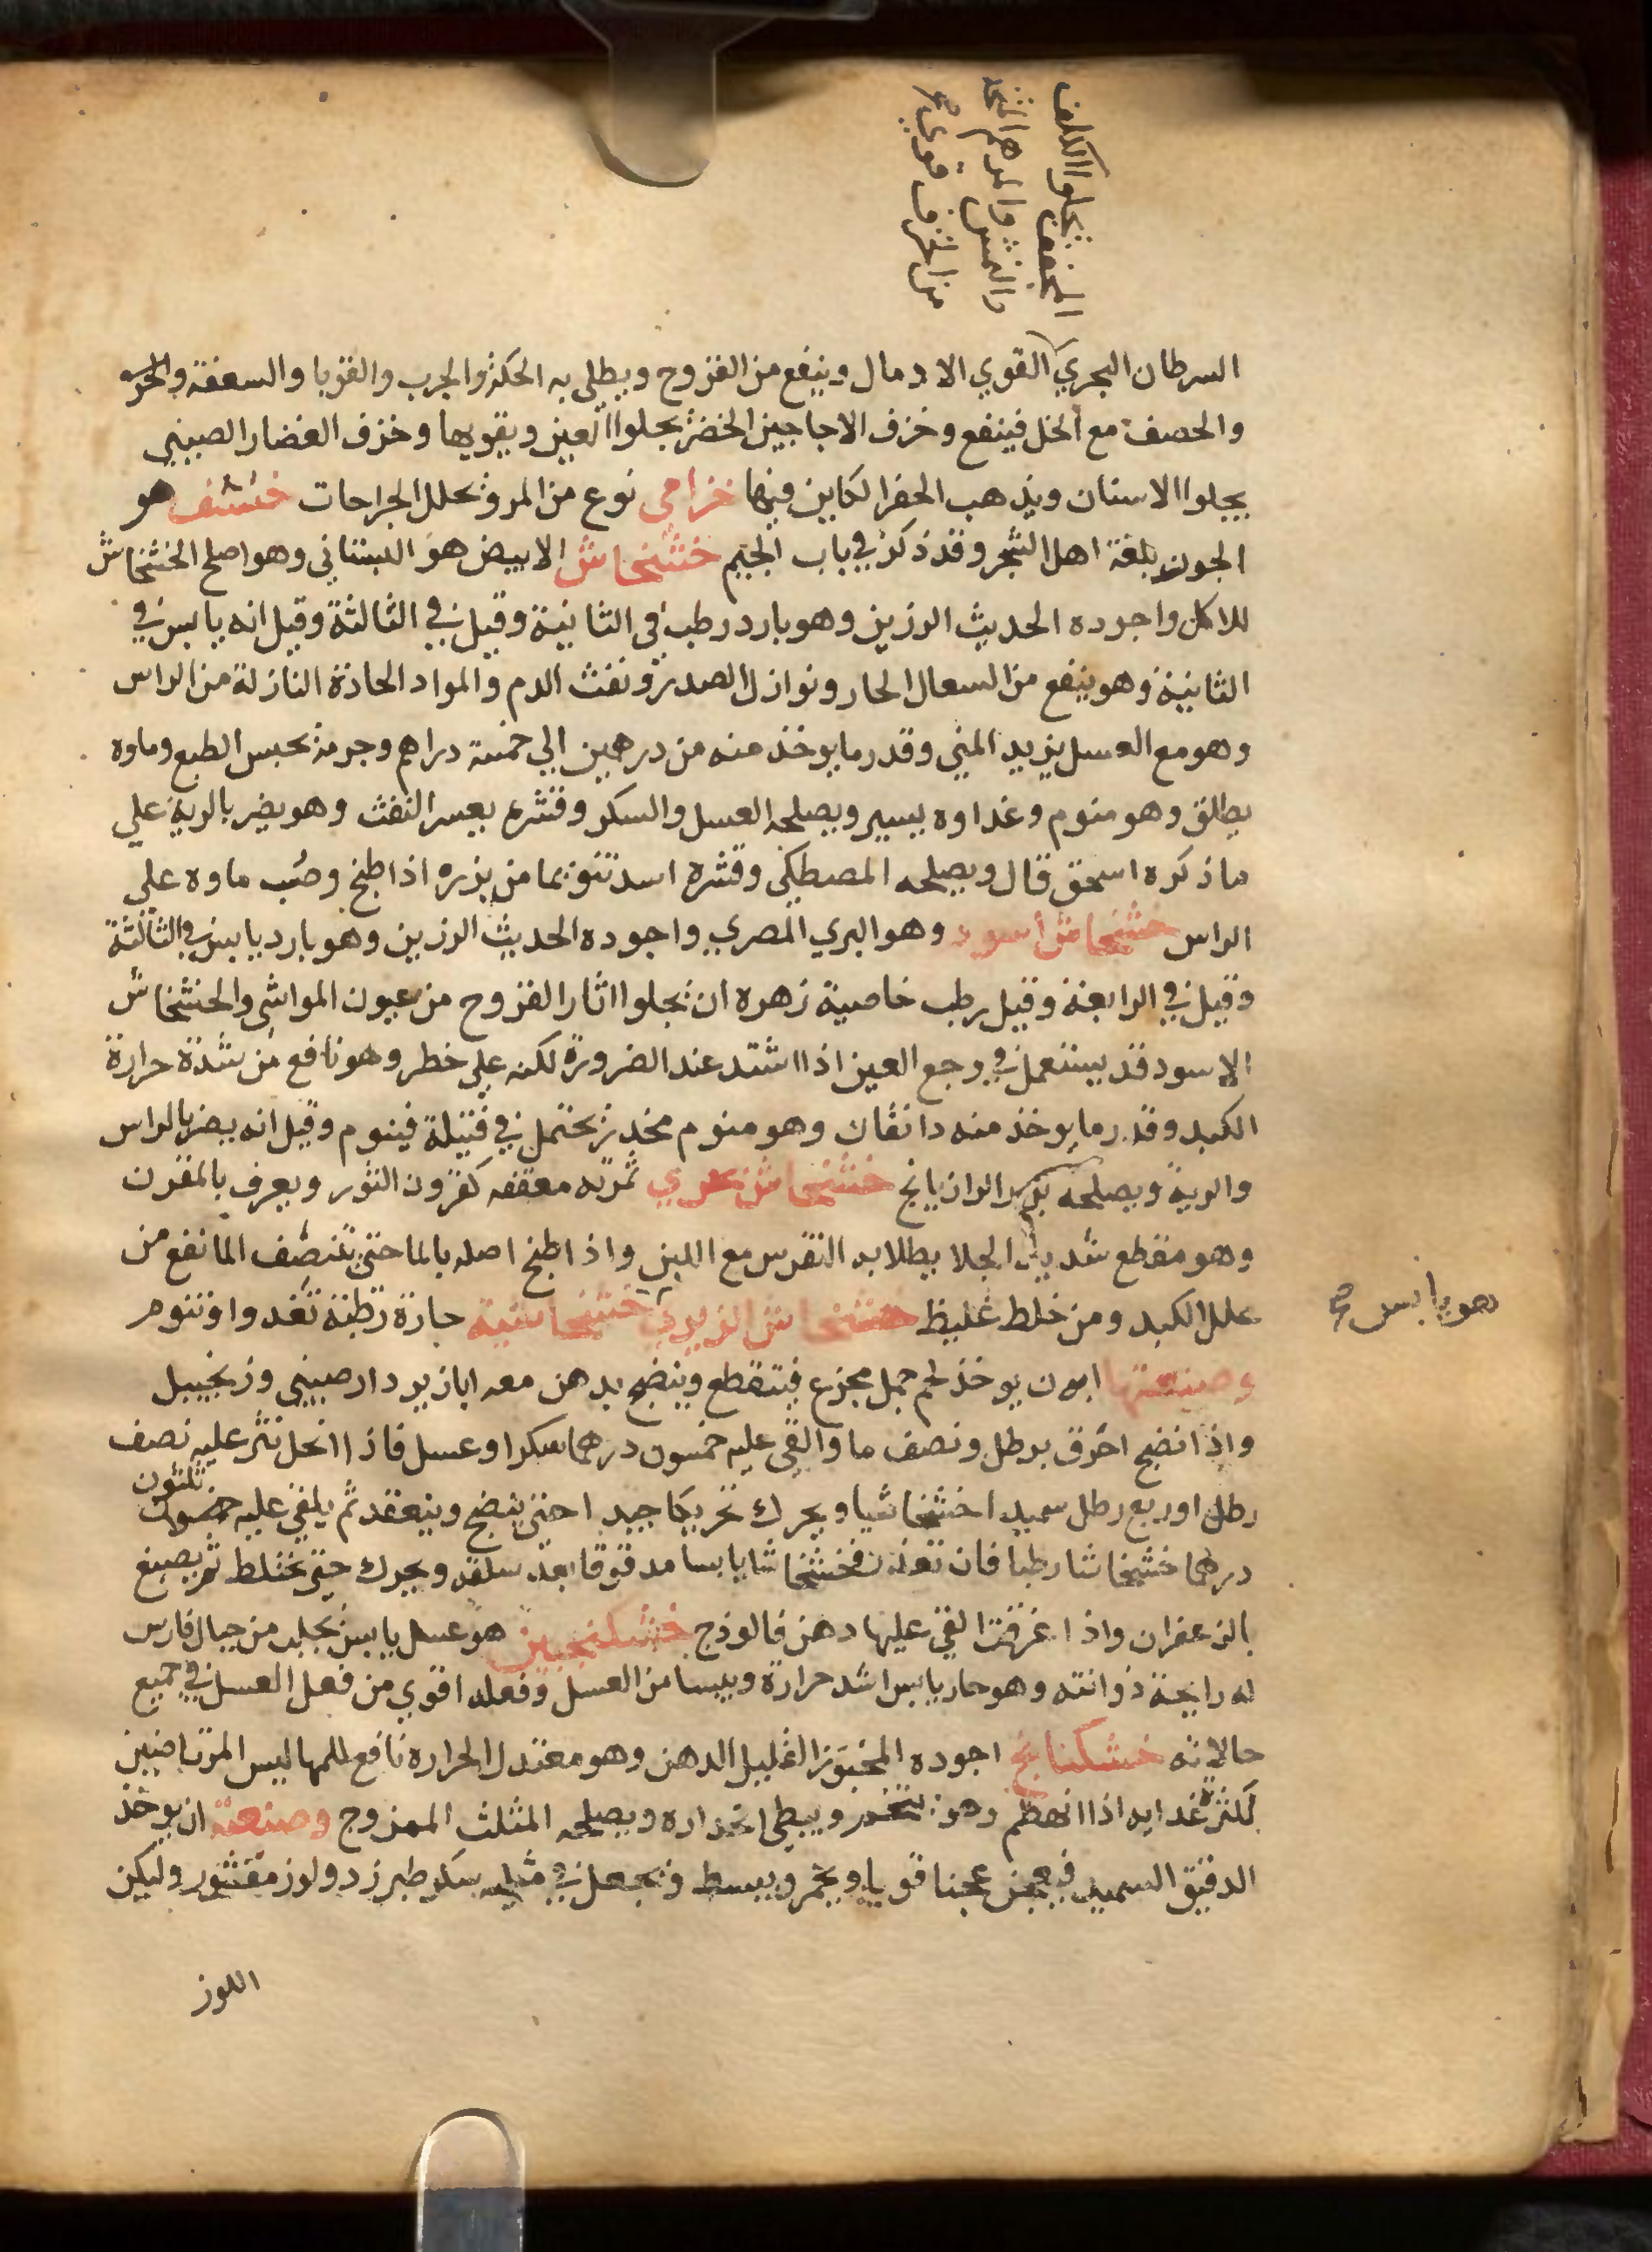 المجفف يجلوا الكلف
والنمش والمرهم المتخذ
من الخزف قوي صح
السرطان البحري القوي الادمال وينفع من القروح ويطلى به الحكة والجرب والقوبا والسعفة
والحصف مع الخل فينفع وخزف الاجاجين الخضر يجلوا العين ويقويها وخزف الغضار الصيني
يجلوا الاسنان ويذهب الحفر الكاين فيها خزامى نوع من المرو يحلل الجراحات خشف هو
الجوز بلغة اهل الشجر وقد ذكر في باب الجيم خشخاش الابيض هو البستاني وهو اصلح الخشخاش
للاكل واجوده الحديث الرزين وهو بارد رطب في الثانية وقيل في الثالثة وقيل انه يابس في
الثانية وهو ينفع من السعال الحار ونوازل الصدر ونفث الدم والمواد الحادة النازلة من الراس
وهو مع العسل يزيد المني وقدر ما يوخذ منه من درهمين الي خمسة دراهم وجرمه يحبس الطبع وماوه
يطلق وهو منوم وغداوه يسير ويصلحه العسل والسكر وقشره يعسر النفث وهو يضر بالرية علي
ما ذكره اسحق قال ويصلحه المصطكي وقشره اسد تنويما من بزره اذا طبخ وصب ماوه علي
الراس خشخاش اسود وهو البري المصري واجوده الحديث الرزين وهو بارد يابس في الثالثة
وقيل في الرابعة وقيل رطب خاصية زهره ان يجلوا اثار القروح من عيون المواشي والخشخاش
الاسود قد يستعمل في وجع العين اذا اشتد عند الضرورة لكنه علي خطر وهو نافع من شدة حرارة
الكبد وقدر ما يوخذ منه دانقان وهو منوم مخدر يحتمل في فتيلة فينوم وقيل انه يضر بالراس
والرية ويصلحه بزر الرازيانج خشخاش بحري ثمرته معقفه كقرون الثور ويعرف بالمقرن
وهو مقطع شديد الجلا يطلا به النقرس مع اللبن واذا طبخ اصله بالما حتي يتنصف الما نفع من
علل الكبد ومن خلط غليظ خشخاش الزبدي خشخاشية حارة رطبة تغدوا وتنوم
هو يابس صح
وصنعتها ان يوخذ لحم حمل مجزع فيتقطع وينضج بدهن معه ابازير دارصيني وزنجبيل
واذا نضج اغرق برطل ونصف ما والقي عليه خمسون درهما سكرا وعسل فاذا انحل نثر عليه نصف
رطل او ربع رطل سميدا خشخاشيا ويحرك تحريكا جيدا حتي ينضج وينعقد ثم يلقي عليه خمسون ثلثون
درهما خشخاشا رطبا فان تعذر فخشخاشا يابسا مدقوقا بعد سلقه ويحرك حتي يختلط ثم يصبغ
بالزعفران واذا غرفت القي عليها دهن فالوذج خشكنجبين هو عسل يابس يجلب من جبال فارس
له رايحة ذوانته وهو حار يابس اشد حرارة ويبسا من العسل وفعله اقوي من فعل العسل في جميع
حالاته خشكنانج اجوده المخبوز القليل الدهن وهو معتدل الحراره نافع للمهاليس المرتاضين
لكثرة غدايه اذا انهظم وهو ويبطي انحداره ويصلحه المثلث الممزوج وصنعته ان يوخذ
الدقيق السميد فيعجن عجنا قويا ويخمر ويبسط ويجعل في مثله سكر طبرزد ولوز مقشور وليكن
اللوز